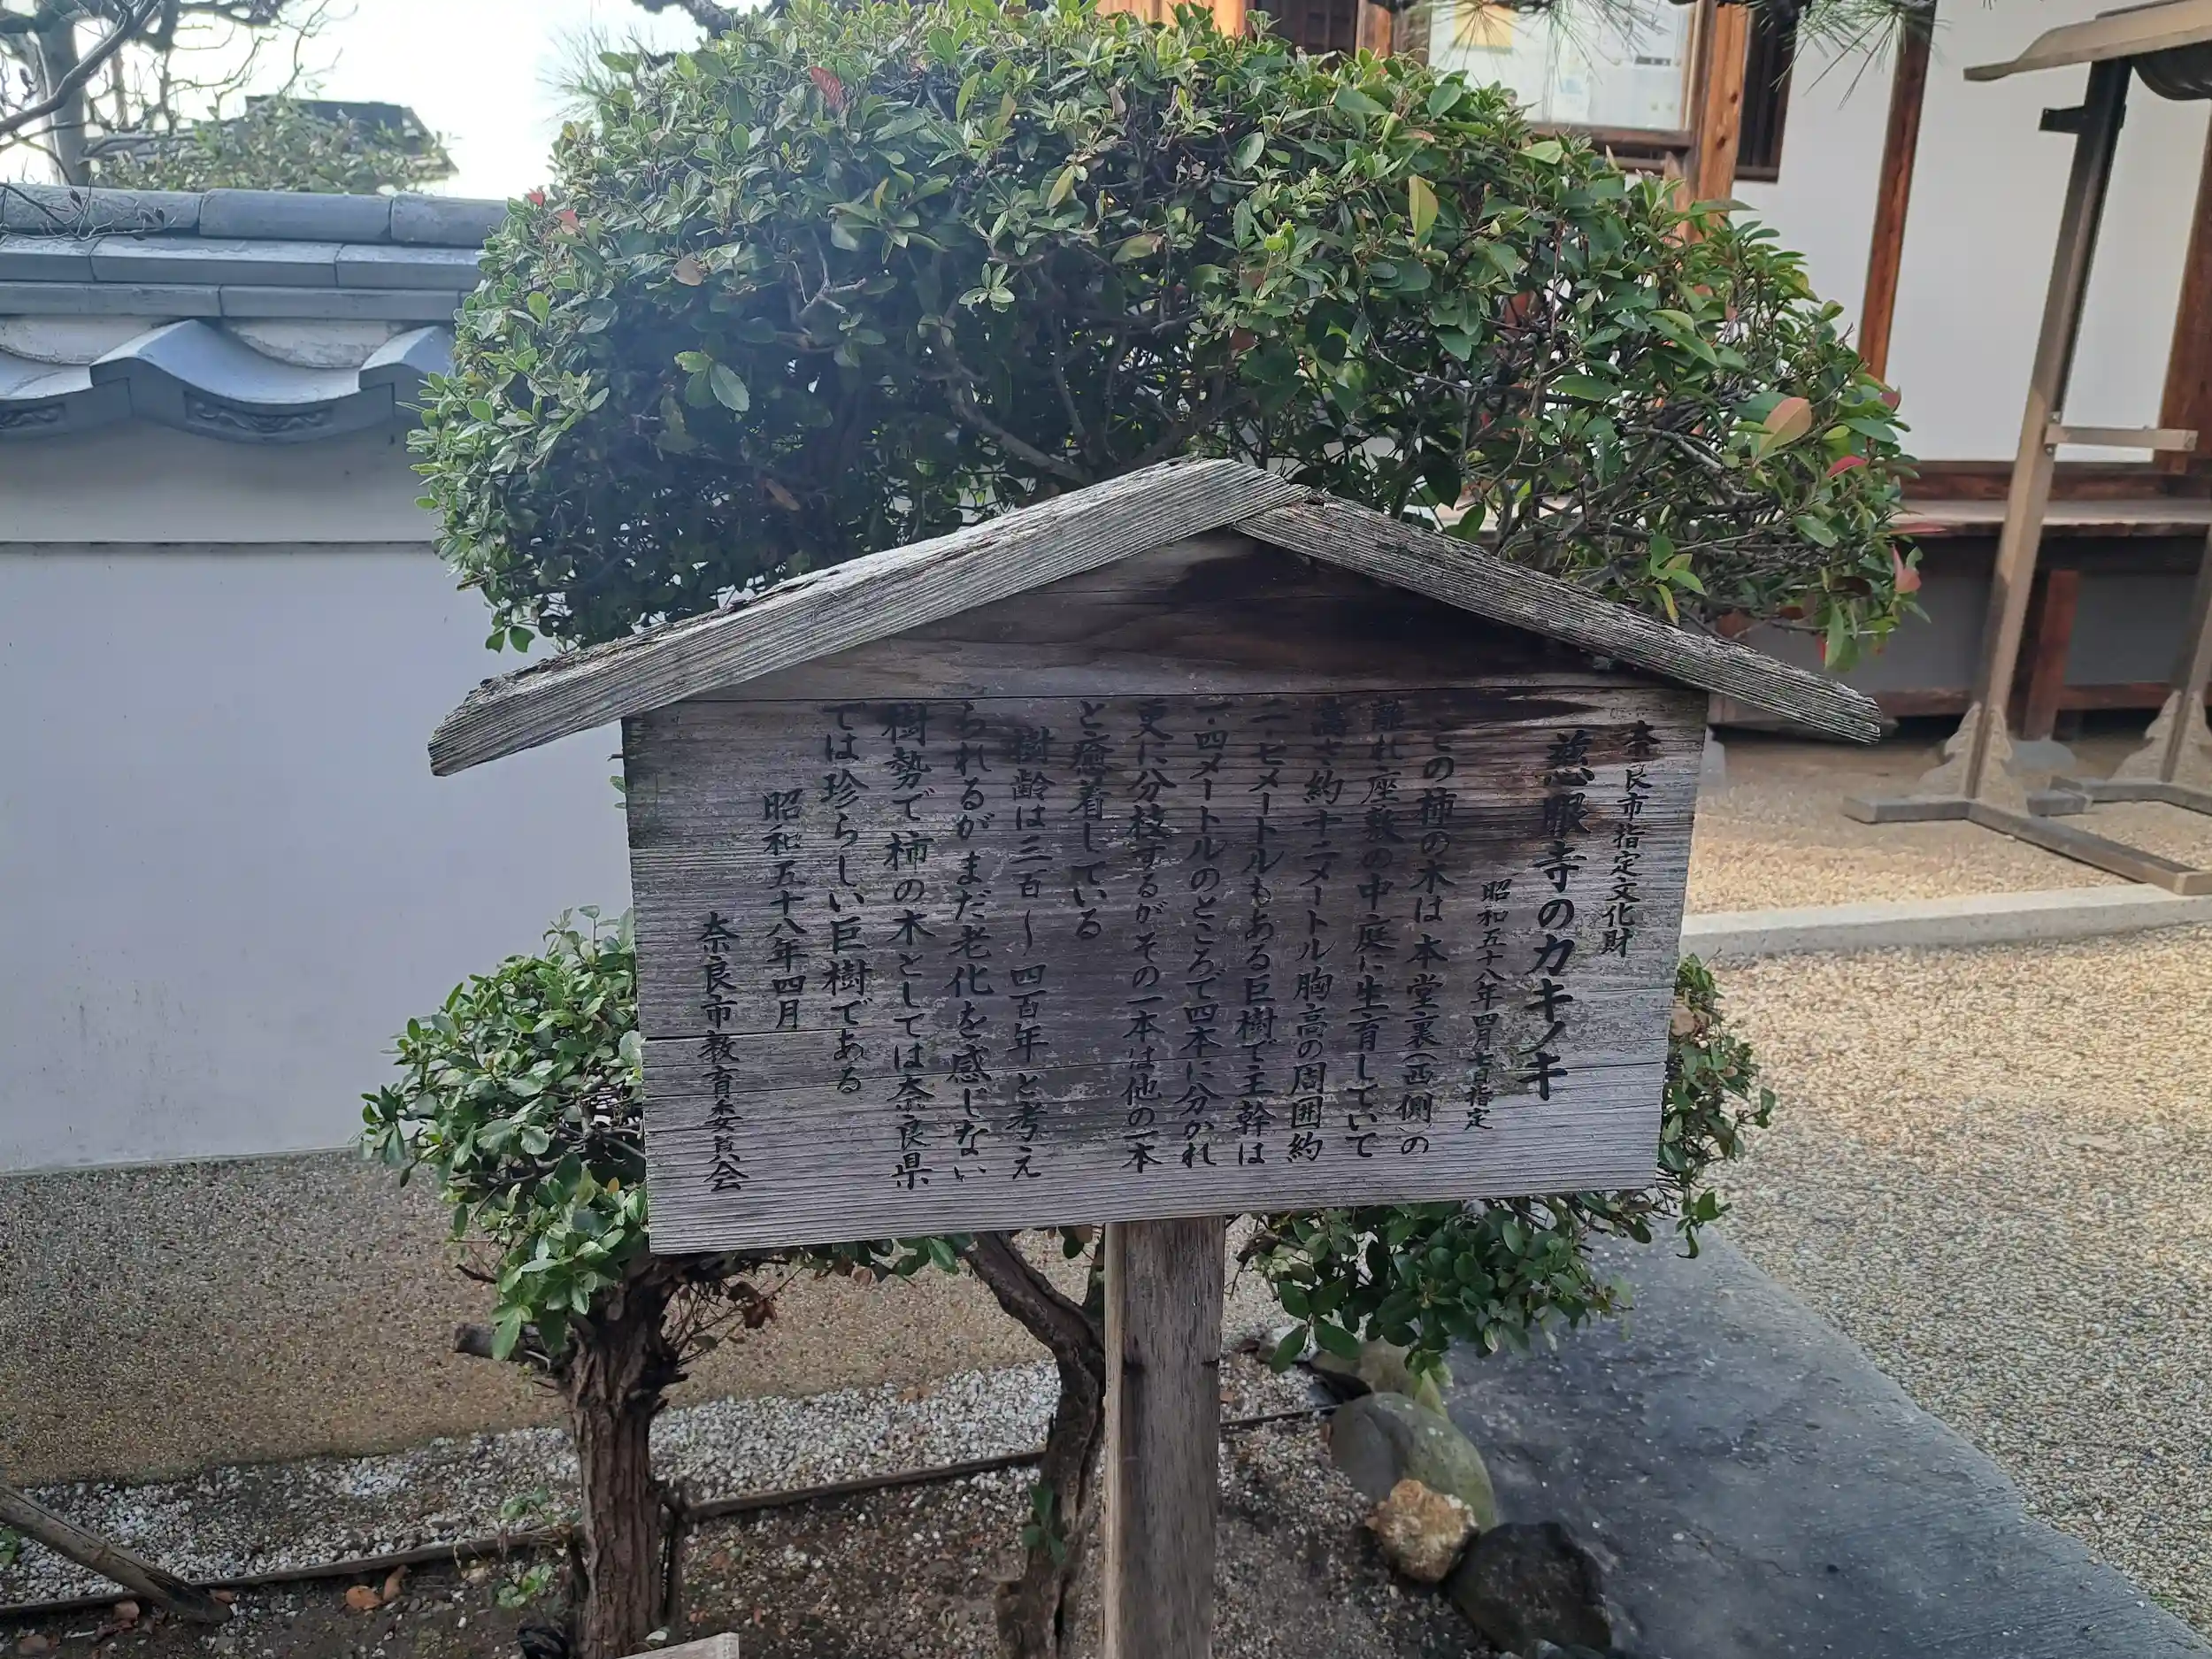 奈良市指定文化財
慈眼寺のカキノキ
昭和五十八年四月七日指定
この柿の木は本堂裏(西側)の
離れ座敷の中庭に生育していて
高さ約十二メートル胸高の周囲約
二・七メートルもある巨樹で主幹は
一・四メートルのところで四本に分かれ
更に分枝するがその一本は他の一本
と癒着している
樹齢は三百～四百年と考え
られるがまだ老化を感じない
樹勢で柿の木としては奈良県
では珍らしい巨樹である
昭和五十八年四月
奈良市教育委員会